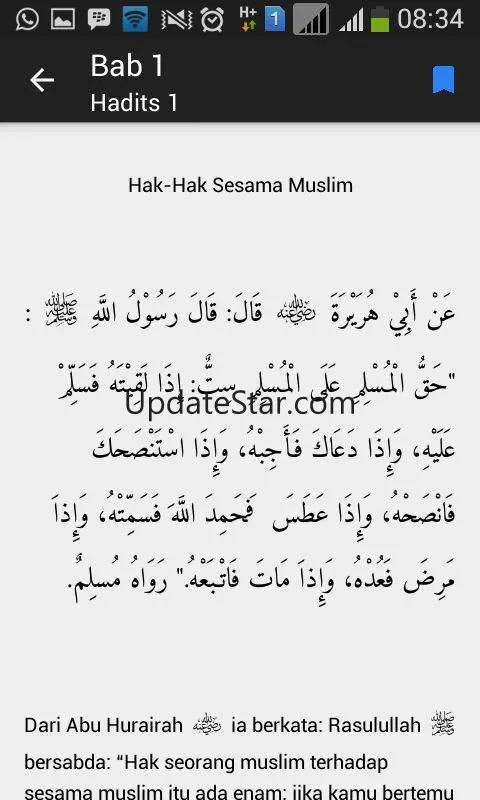 08:34
Bab 1
Hadits 1
Hak-Hak Sesama Muslim
عَنْ أَبِيْ هُرَيْرَةَ رضي الله عنه قَالَ: قَالَ رَسُوْلُ اللَّهِ ﷺ :
"حَقُّ الْمُسْلِمِ عَلَى الْمُسْلِمِ سِتٌّ: إِذَا لَقِيْتَهُ فَسَلِّمْ
UpdateStar.com
عَلَيْهِ، وَإِذَا دَعَاكَ فَأَجِبْهُ، وَإِذَا اسْتَنْصَحَكَ
فَانْصَحْهُ، وَإِذَا عَطَسَ فَحَمِدَ اللَّهَ فَسَمِّتْهُ، وَإِذاَ
مَرِضَ فَعُدْهُ، وَإِذاَ مَاتَ فَاتْبَعْهُ." رَوَاهُ مُسلِمٌ.
Dari Abu Hurairah رضي الله عنه ia berkata: Rasulullah ﷺ
bersabda: “Hak seorang muslim terhadap
sesama muslim itu ada enam: jika kamu bertemu